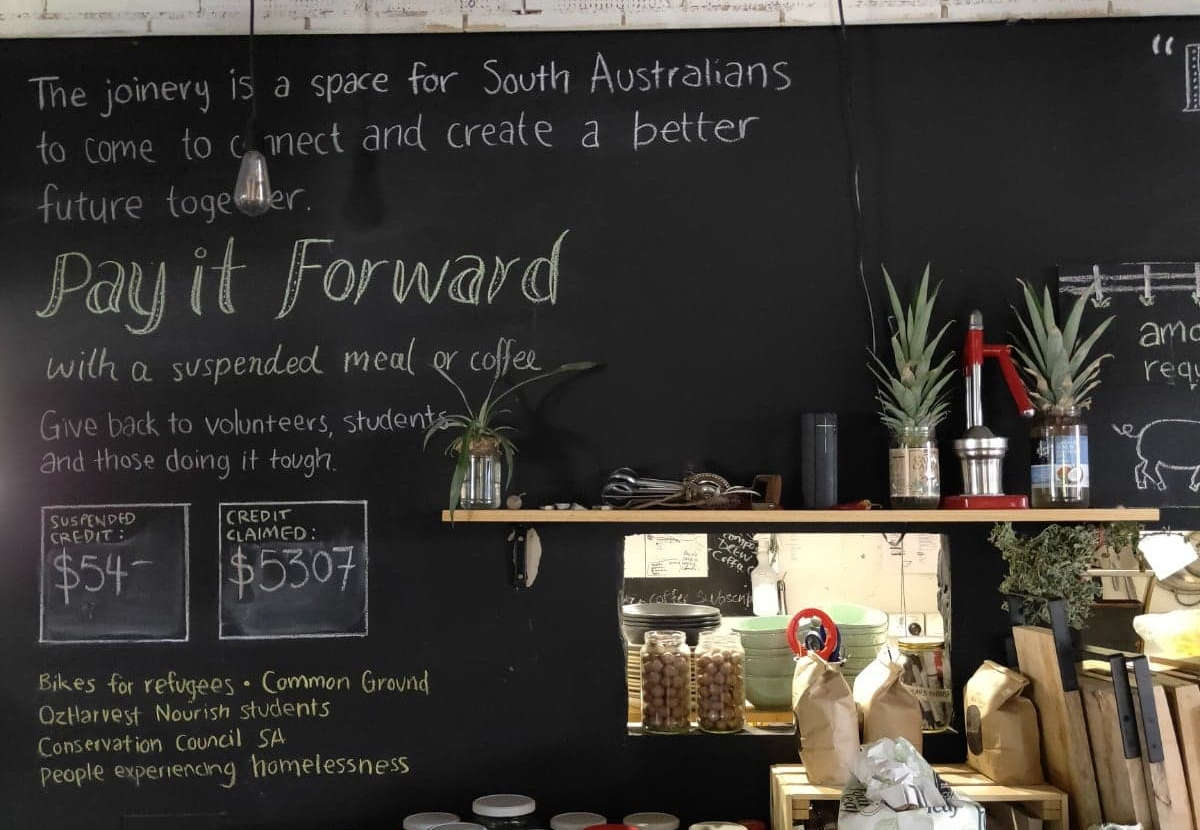 The joinery is a space for South Australians
to come to connect and create a better
future together.
Pay it Forward
with a suspended meal or coffee
Give back to volunteers, students
and those doing it tough.
SUSPENDED
CREDIT:
$54-
CREDIT
CLAIMED:
$5307
Bikes for refugees • Common Ground
OzHarvest Nourish students
Conservation Council SA
People experiencing homelessness